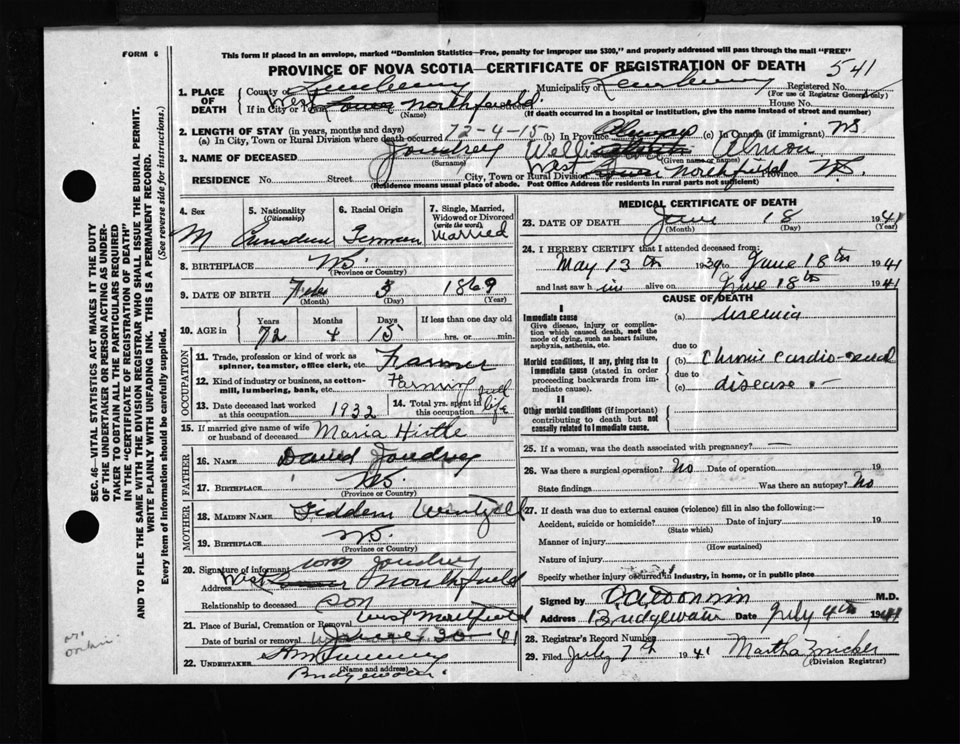 FORM 6
This form if placed in an envelope, marked "Dominion Statistics—Free, penalty for improper use $300," and properly addressed will pass through the mail "FREE"
PROVINCE OF NOVA SCOTIA—CERTIFICATE OF REGISTRATION OF DEATH 541
1. PLACE OF DEATH
County of Lunenburg Municipality of Lunenburg Registered No.
(For use of Registrar General only)
If in City or Town West Northfield House No.
(Name) (If death occurred in a hospital or institution, give the name instead of street and number)
2. LENGTH OF STAY (in years, months and days)
(a) In City, Town or Rural Division where death occurred 72-4-15 (b) In Province Always (c) In Canada (if immigrant) NS
3. NAME OF DECEASED Joudrey Almon
(Surname) (Given name or names)
RESIDENCE No. Street City, Town or Rural Division West Northfield Province N.S.
(Residence means usual place of abode. Post Office Address for residents in rural parts not sufficient)
4. Sex M
5. Nationality (Citizenship) Canadian
6. Racial Origin German
7. Single, Married, Widowed or Divorced (write the word) Married
8. BIRTHPLACE N.S.
(Province or Country)
9. DATE OF BIRTH Feb 3 1869
(Month) (Day) (Year)
10. AGE in Years 72 Months 4 Days 15 If less than one day old hrs. or min.
OCCUPATION
11. Trade, profession or kind of work as spinner, teamster, office clerk, etc. Farmer
12. Kind of industry or business, as cotton-mill, lumbering, bank, etc. Farming
13. Date deceased last worked at this occupation 1932
14. Total yrs. spent in this occupation life
15. If married give name of wife or husband of deceased Maria Hirtle
FATHER
16. NAME David Joudrey
17. BIRTHPLACE N.S.
(Province or Country)
MOTHER
18. MAIDEN NAME Wentzell
19. BIRTHPLACE N.S.
(Province or Country)
20. Signature of informant Joudrey
Address West Northfield
Relationship to deceased Son
21. Place of Burial, Cremation or Removal West Northfield
Date of burial or removal 41
22. UNDERTAKER Sweeny
(Name and address)
Bridgewater
MEDICAL CERTIFICATE OF DEATH
23. DATE OF DEATH June 18 1941
(Month) (Day) (Year)
24. I HEREBY CERTIFY that I attended deceased from:
May 13th 1939 to June 18th 1941
and last saw him alive on June 18th 1941
CAUSE OF DEATH
I
Immediate cause (a) Uremia
Give disease, injury or complication which caused death, not the mode of dying, such as heart failure, asphyxia, asthenia, etc.
due to
Morbid conditions, if any, giving rise to immediate cause (stated in order proceeding backwards from immediate cause).
(b) Chronic cardio-renal
due to
(c) disease
II
Other morbid conditions (if important) contributing to death but not causally related to immediate cause.
25. If a woman, was the death associated with pregnancy? —
26. Was there a surgical operation? No Date of operation 19
State findings Was there an autopsy? No
27. If death was due to external causes (violence) fill in also the following:—
Accident, suicide or homicide? Date of injury 19
(State which)
Manner of injury
(How sustained)
Nature of injury
Specify whether injury occurred in industry, in home, or in public place
Signed by M.D.
Address Bridgewater Date July 4th 1941
28. Registrar's Record Number
29. Filed July 7th 1941 Martha Zwicker
(Division Registrar)
SEC. 46—VITAL STATISTICS ACT MAKES IT THE DUTY
OF THE UNDERTAKER OR PERSON ACTING AS UNDER-
TAKER TO OBTAIN ALL THE PARTICULARS REQUIRED
IN THE "CERTIFICATE OF REGISTRATION OF DEATH"
AND TO FILE THE SAME WITH THE DIVISION REGISTRAR WHO SHALL ISSUE THE BURIAL PERMIT.
WRITE PLAINLY WITH UNFADING INK. THIS IS A PERMANENT RECORD.
Every item of information should be carefully supplied. (See reverse side for instructions.)